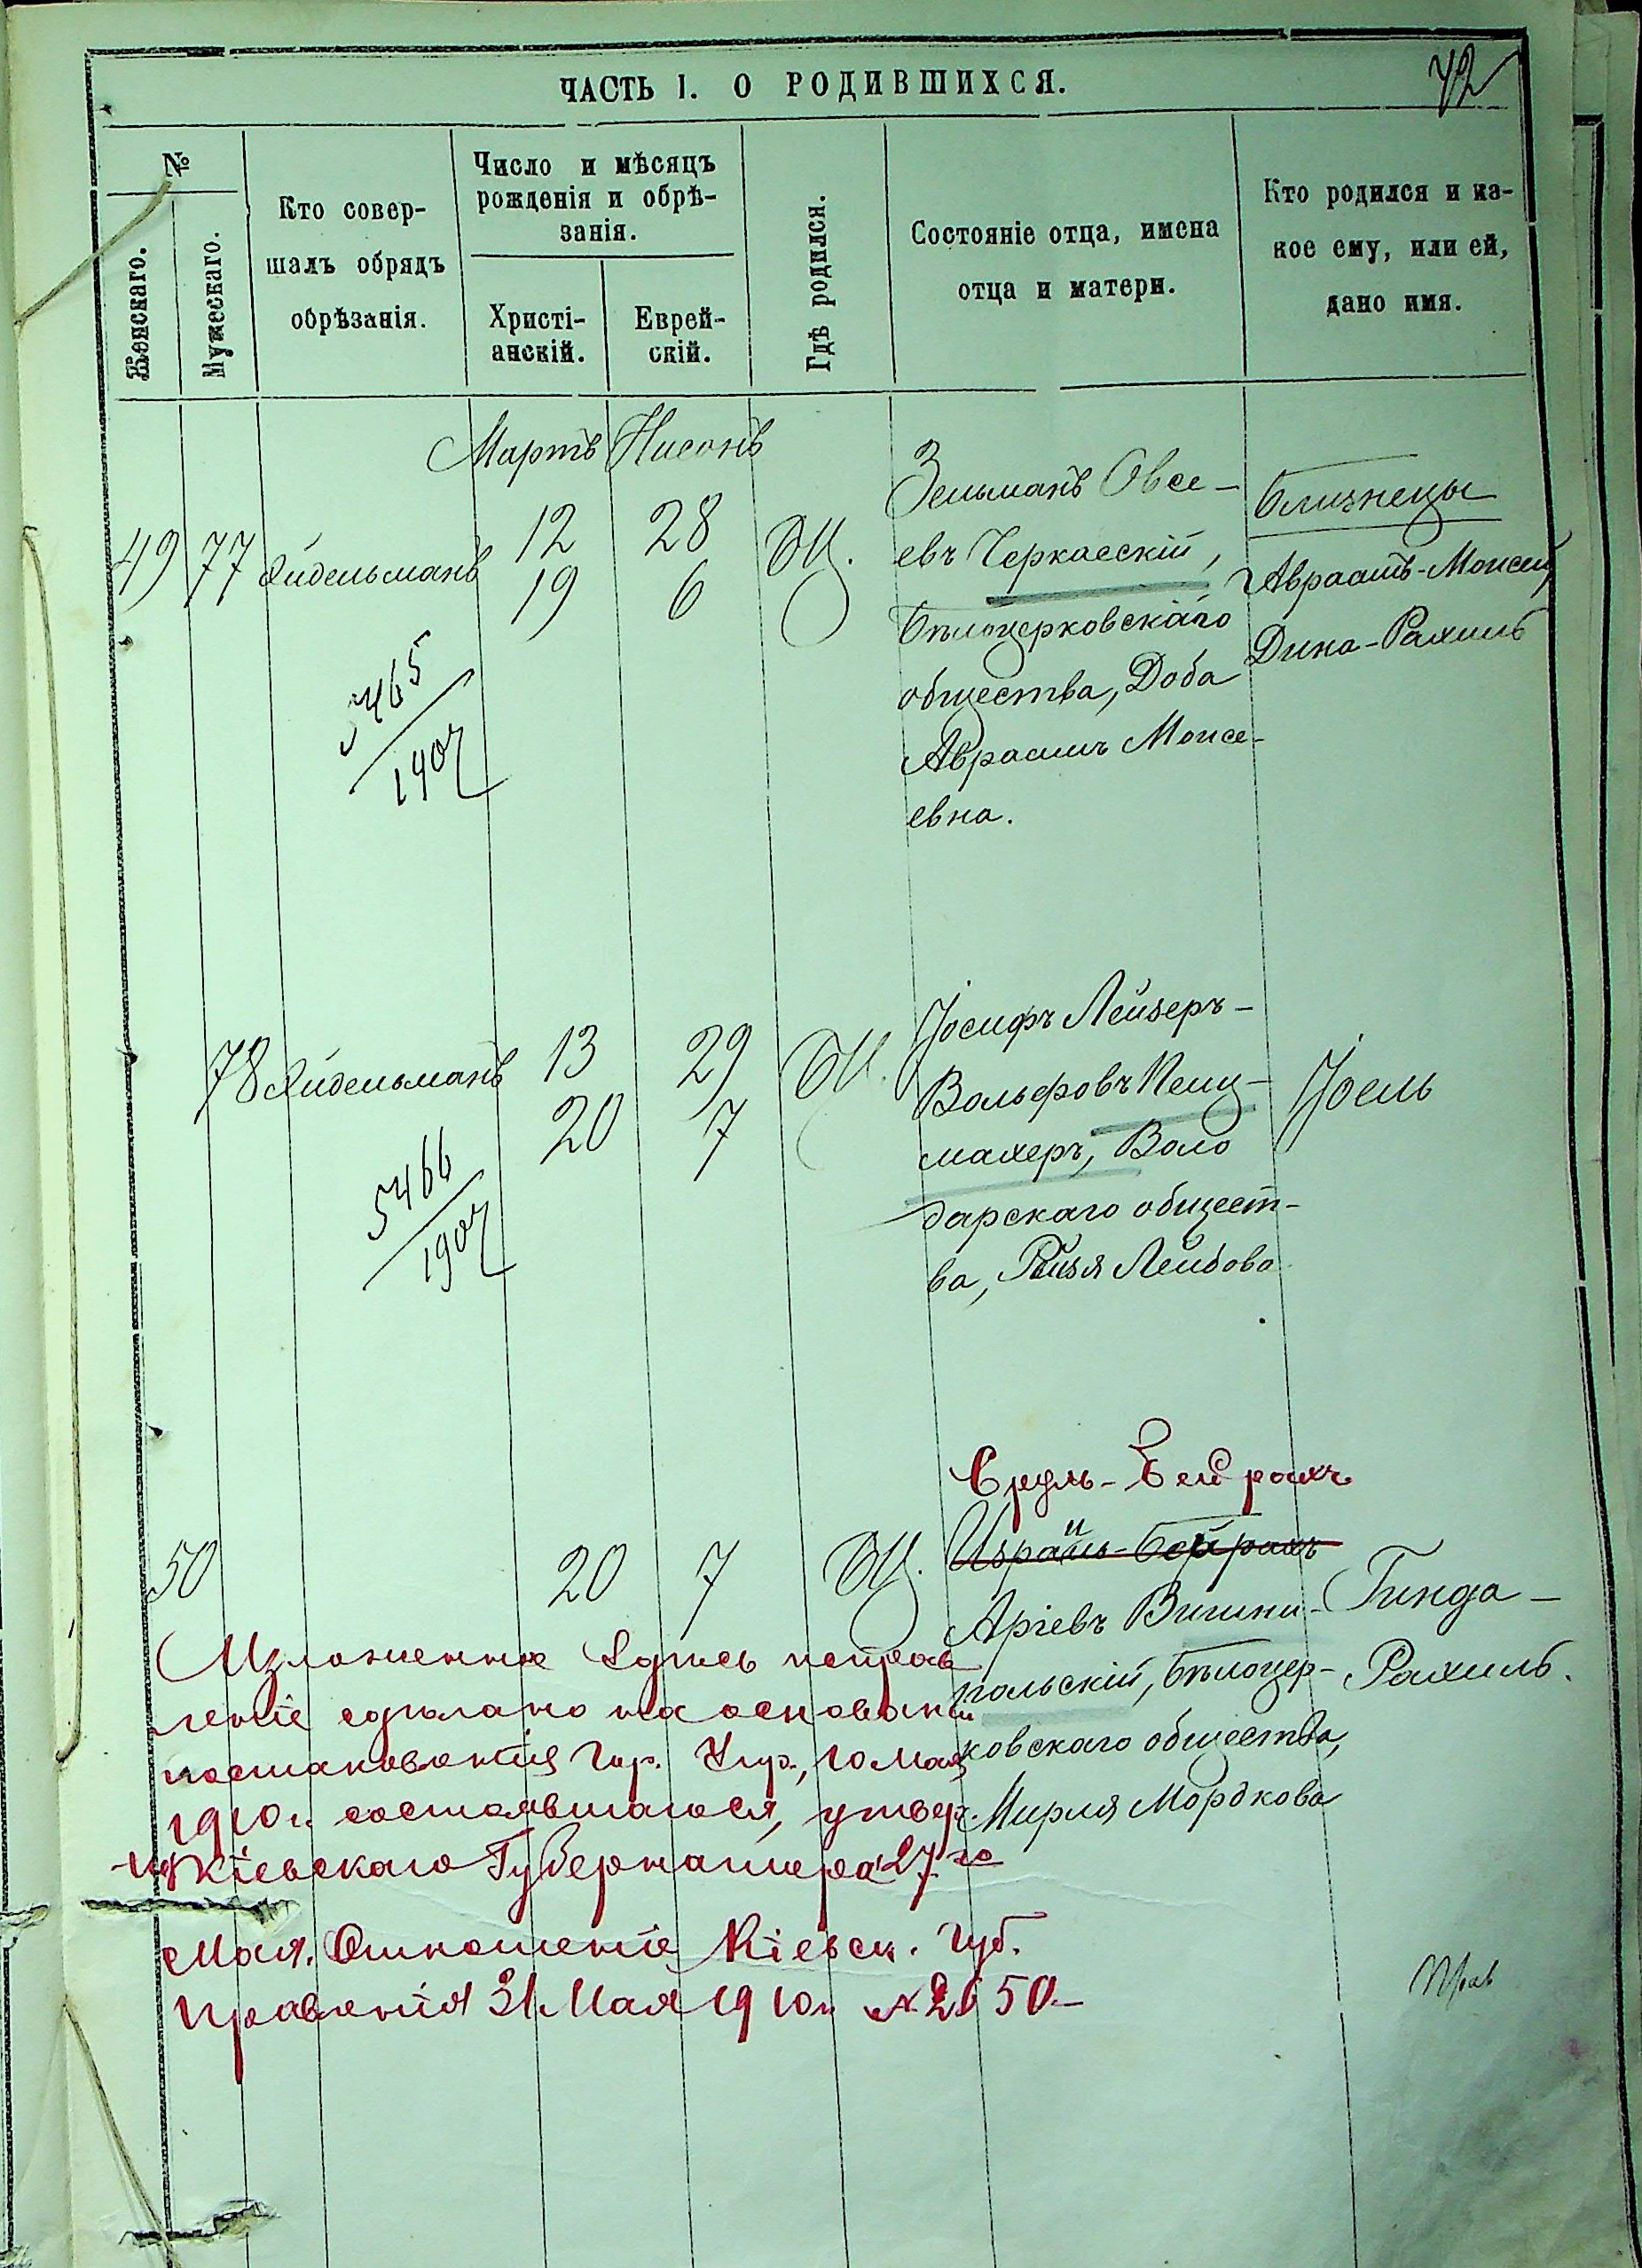 ЧАСТЬ I. О РОДИВШИХСЯ.
42
№
Женскаго.
Мужескаго.
Кто совер-
шалъ обрядъ
обрѣзанія.
Число и мѣсяцъ
рожденія и обрѣ-
занія.
Христі-
анскій.
Еврей-
скій.
Гдѣ родился.
Состояніе отца, имена
отца и матери.
Кто родился и ка-
кое ему, или ей,
дано имя.
Мартъ Нисонъ
49 77 Айдельманъ
12 28
19 6
БЦ.
Зельманъ Овсе-
евъ Черкасскій,
Бѣлоцерковскаго
общества, Доба
Авраамъ Моисе-
евна.
Близнецы
Авраамъ-Моисей,
Дина-Рахиль
5465
1907
78 Айдельманъ
13 29
20 7
БЦ.
Іосифъ Лейзеръ-
Вольфовъ Кенц-
махеръ, Воло
дарскаго общест-
ва, Рейзя Лейбова
Іоель
5466
1907
Сруль-Бейрахъ
50
20 7
БЦ.
Израиль-Бейрахъ
Аріевъ Вишни-
польскій, Бѣлоцер-
ковскаго общества,
Мирля Мордкова
Гинда-
Рахиль.
Изложенное здѣсь исправ
леніе сдѣлано на основаніи
постановленія Гор. Упр., 10 Мая
1910 г. состоявшагося, утвер.
Кіевскаго Губернатора 27 го
Мая. Отношеніе Кіевск. Губ.
Правленія 31 Мая 1910 г. № 2650.-